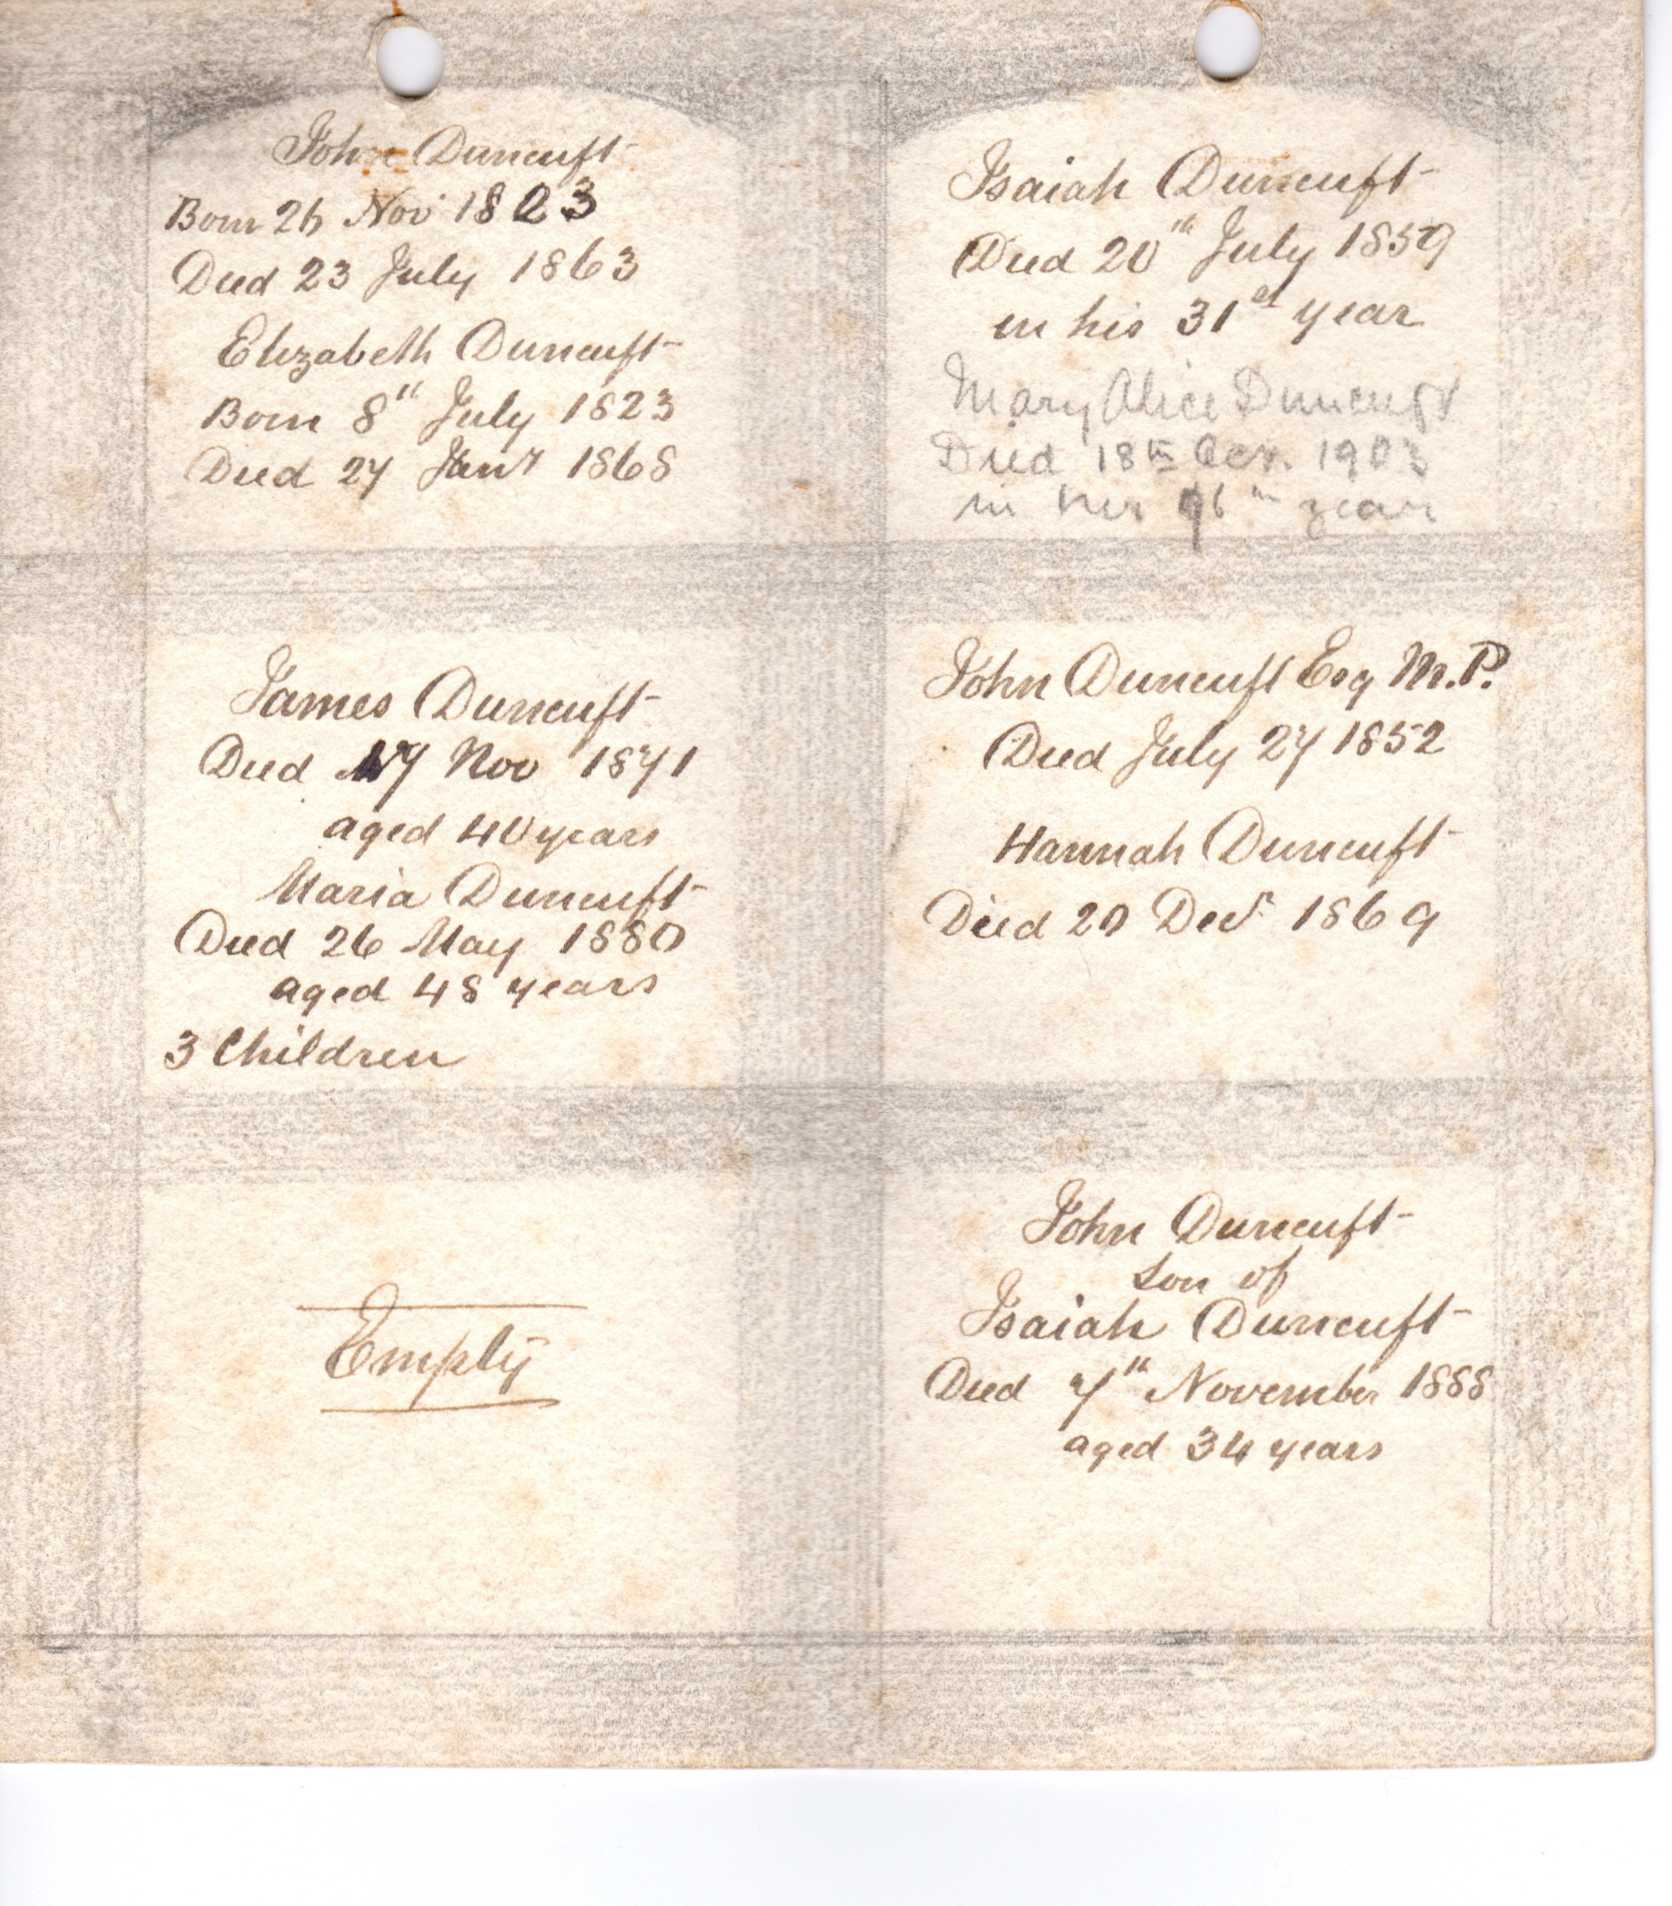 John Duncuft
Born 26 Nov 1823
Died 23 July 1863
Elizabeth Duncuft
Born 8th July 1823
Died 27 Jany 1868
Isaiah Duncuft
Died 20th July 1859
in his 31st year
Mary Alice Duncuft
Died 18th Oct. 1903
in her 76th year
James Duncuft
Died 17 Nov 1871
aged 40 years
Maria Duncuft
Died 26 May 1880
aged 48 years
3 Children
John Duncuft Esq M.P.
Died July 27 1852
Hannah Duncuft
Died 20 Decr 1869
Empty
John Duncuft
son of
Isaiah Duncuft
Died 7th November 1888
aged 34 years